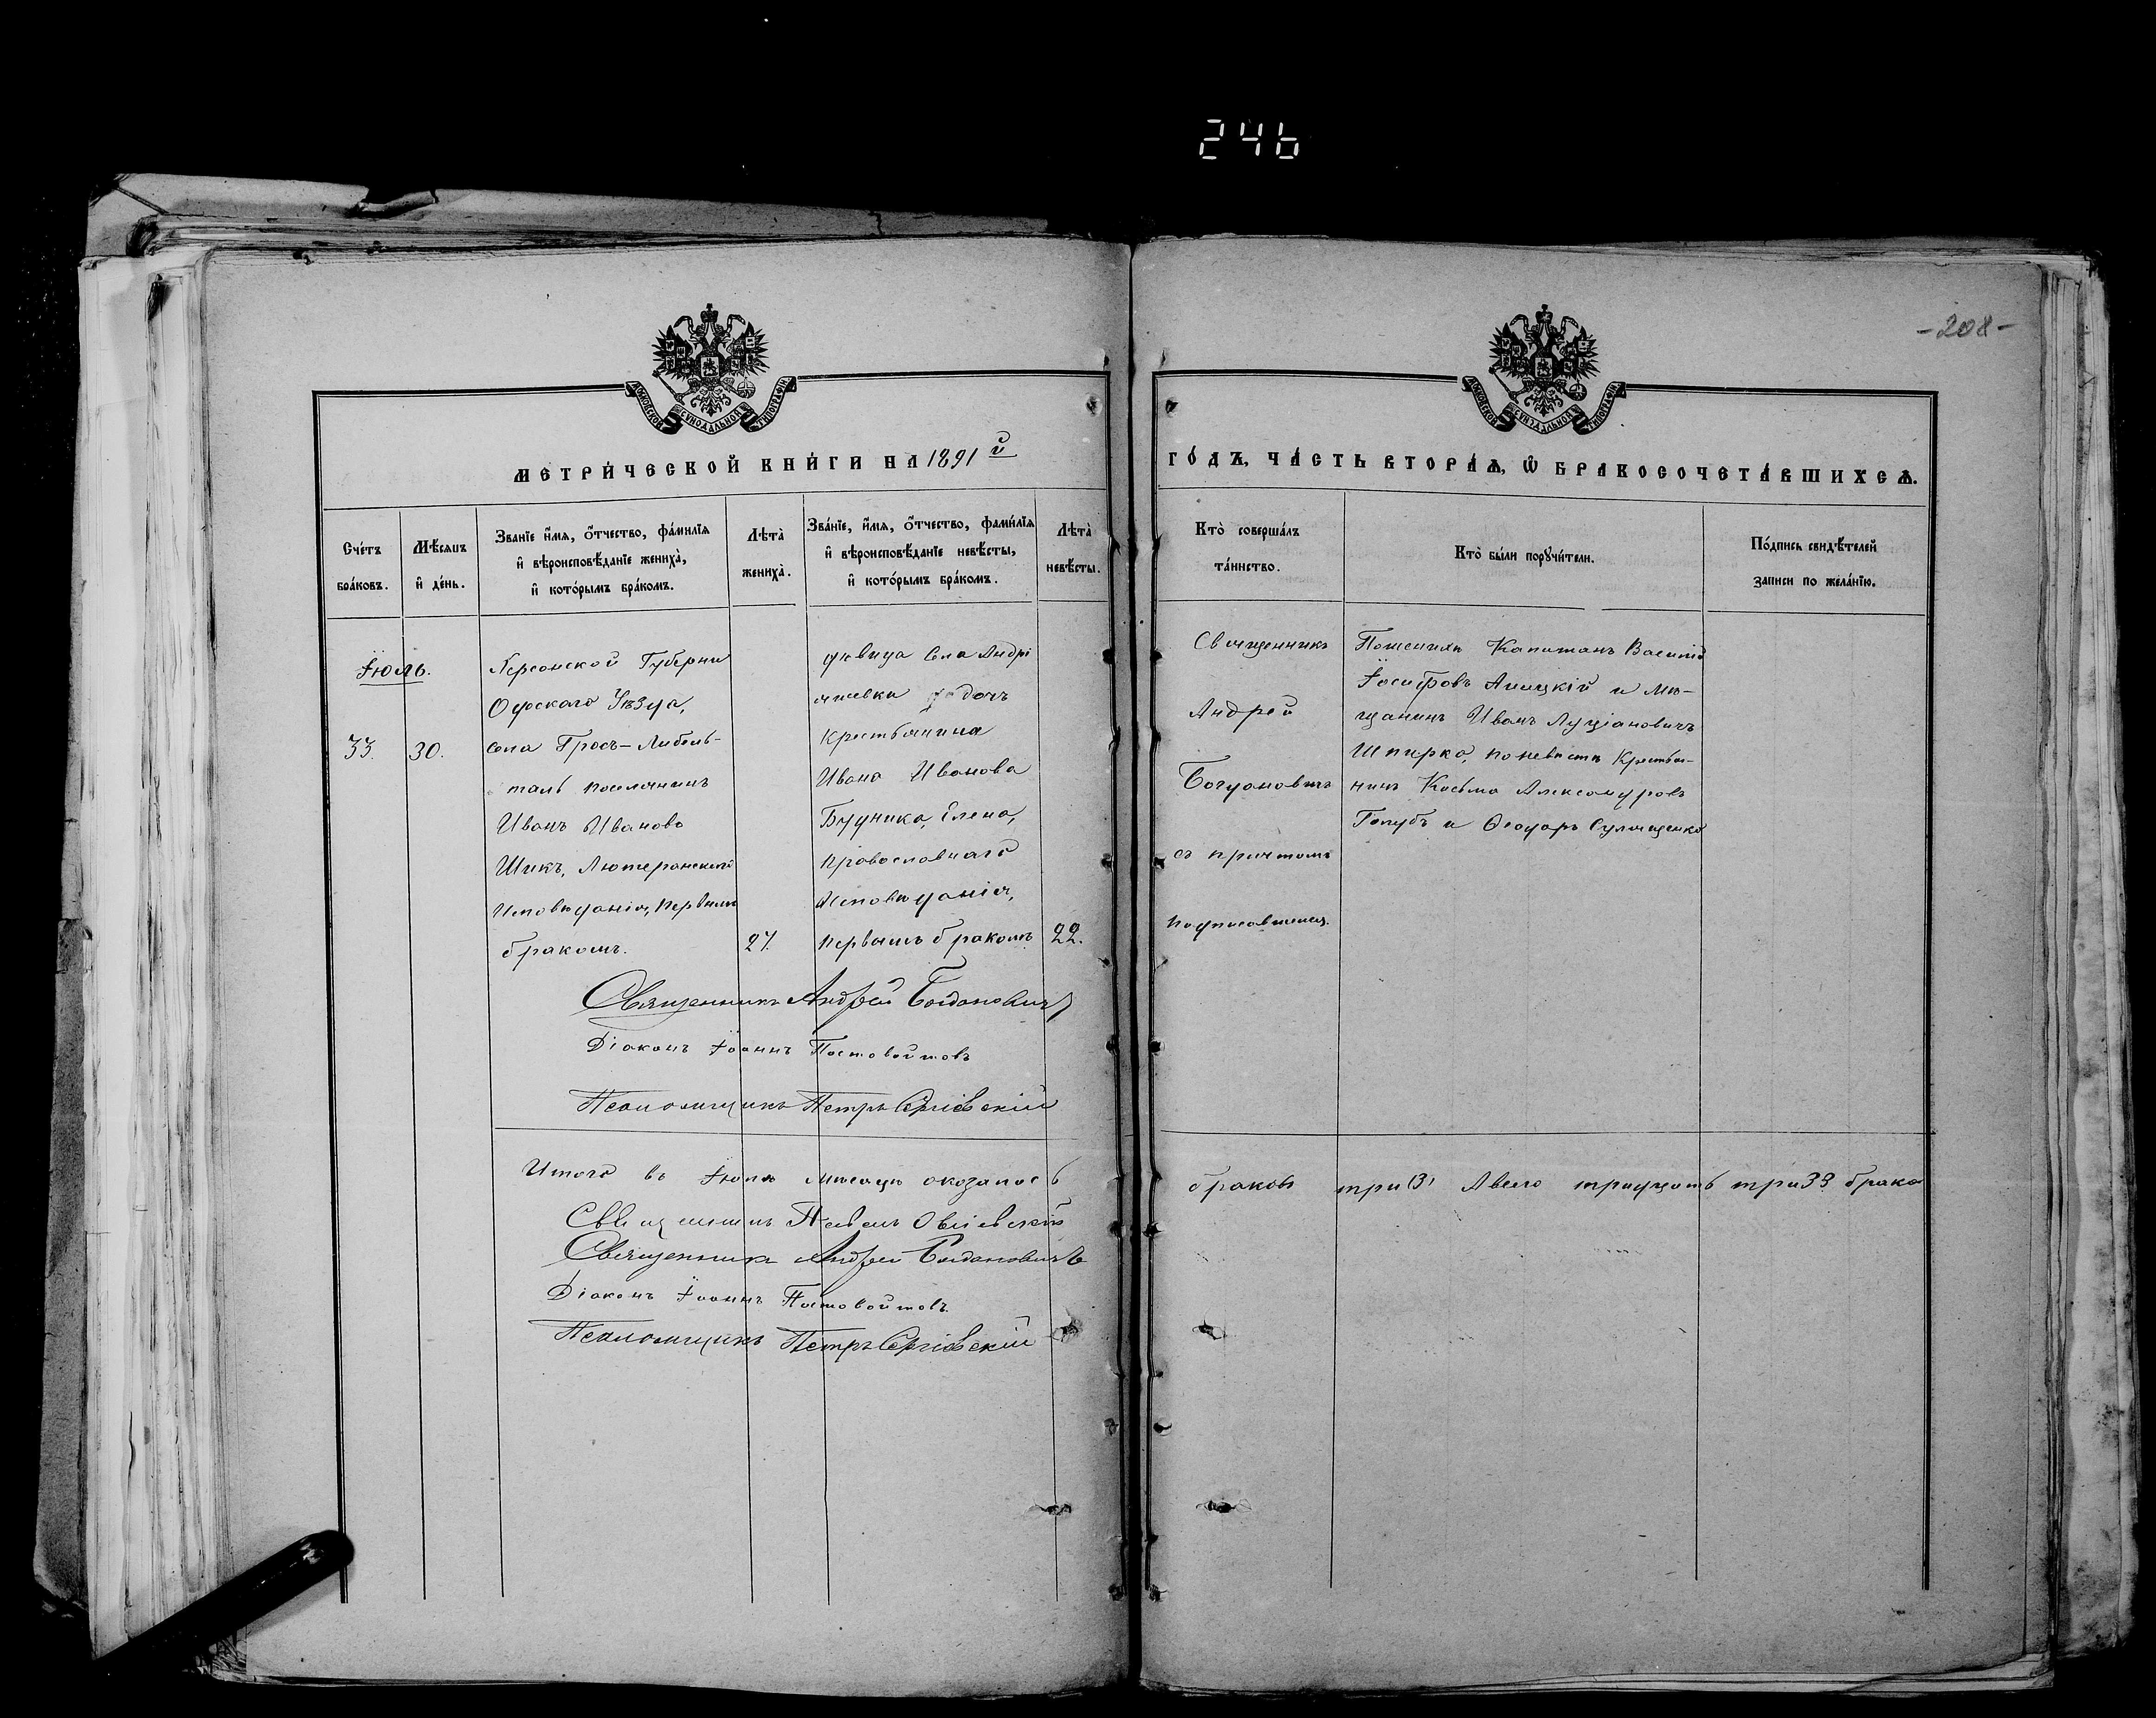 246
-208-
МОСКОВСКОЙ СѴНОДАЛЬНОЙ ТИПОГРАФІИ
МОСКОВСКОЙ СѴНОДАЛЬНОЙ ТИПОГРАФІИ
МЕТРИ́ЧЕСКОЙ КНИ́ГИ НА 1891й
ГО́ДЪ, ЧА́СТЬ ВТОРА́Ѧ, Ѽ БРАКОСОЧЕТА́ВШИХСѦ.
Сче́тъ
бра́ковъ.
Мѣ́сяцъ
и҆ де́нь.
Зва́нїе и҆́мя, ѻ҆́тчество, фами́лїя
и҆ вѣроисповѣ́данїе жениха̀,
и҆ кото́рымъ бра́комъ.
Лѣта̀
жениха̀.
Зва́нїе, и҆́мя, ѻ҆́тчество, фами́лїя
и҆ вѣроисповѣ́данїе невѣ́сты,
и҆ кото́рымъ бра́комъ.
Лѣта̀
невѣ́сты.
Кто̀ соверша́лъ
та́инство.
Кто̀ бы́ли порꙋчи́тели.
По́дпись свидѣ́телей
записи по жела́нїю.
Іюль.
33.
30.
Херсонской Губерни
Одескаго Уѣзда,
села Гросъ-Либель-
таль поселянинъ
Иванъ Иванова
Шикъ, Лютеранскаго
Исповѣданія, первымъ
бракомъ.
27.
дѣвица Села Андрі
яшевки дочь
Крестьянина
Ивана Иванова
Будника, Елена,
православнаго
Исповѣданія,
первымъ бракомъ
22.
Священникъ
Андрей
Богдановичъ
съ причтомъ
подписавшимся.
По женихѣ Капитанъ Василій
Іосифовъ Ашицкій и мѣ-
щанинъ Иванъ Луціановичъ
Шпирко, по невѣстѣ Крестья-
нинъ Косьма Александровъ
Голубъ и Ѳеодоръ Сулященко
Священникъ Андрей Богдановичъ
Діаконъ Іоаннъ Постовойтовъ
Псаломщикъ Петръ Сергіевскій
Итого въ Іюлѣ мѣсяцѣ оказалось
браковъ три (3) А всего тридцать три 33 брака
Священникъ Павелъ
Священникъ Андрей Богдановичъ
Діаконъ Іоаннъ Постовойтовъ.
Псаломщикъ Петръ Сергіевскій